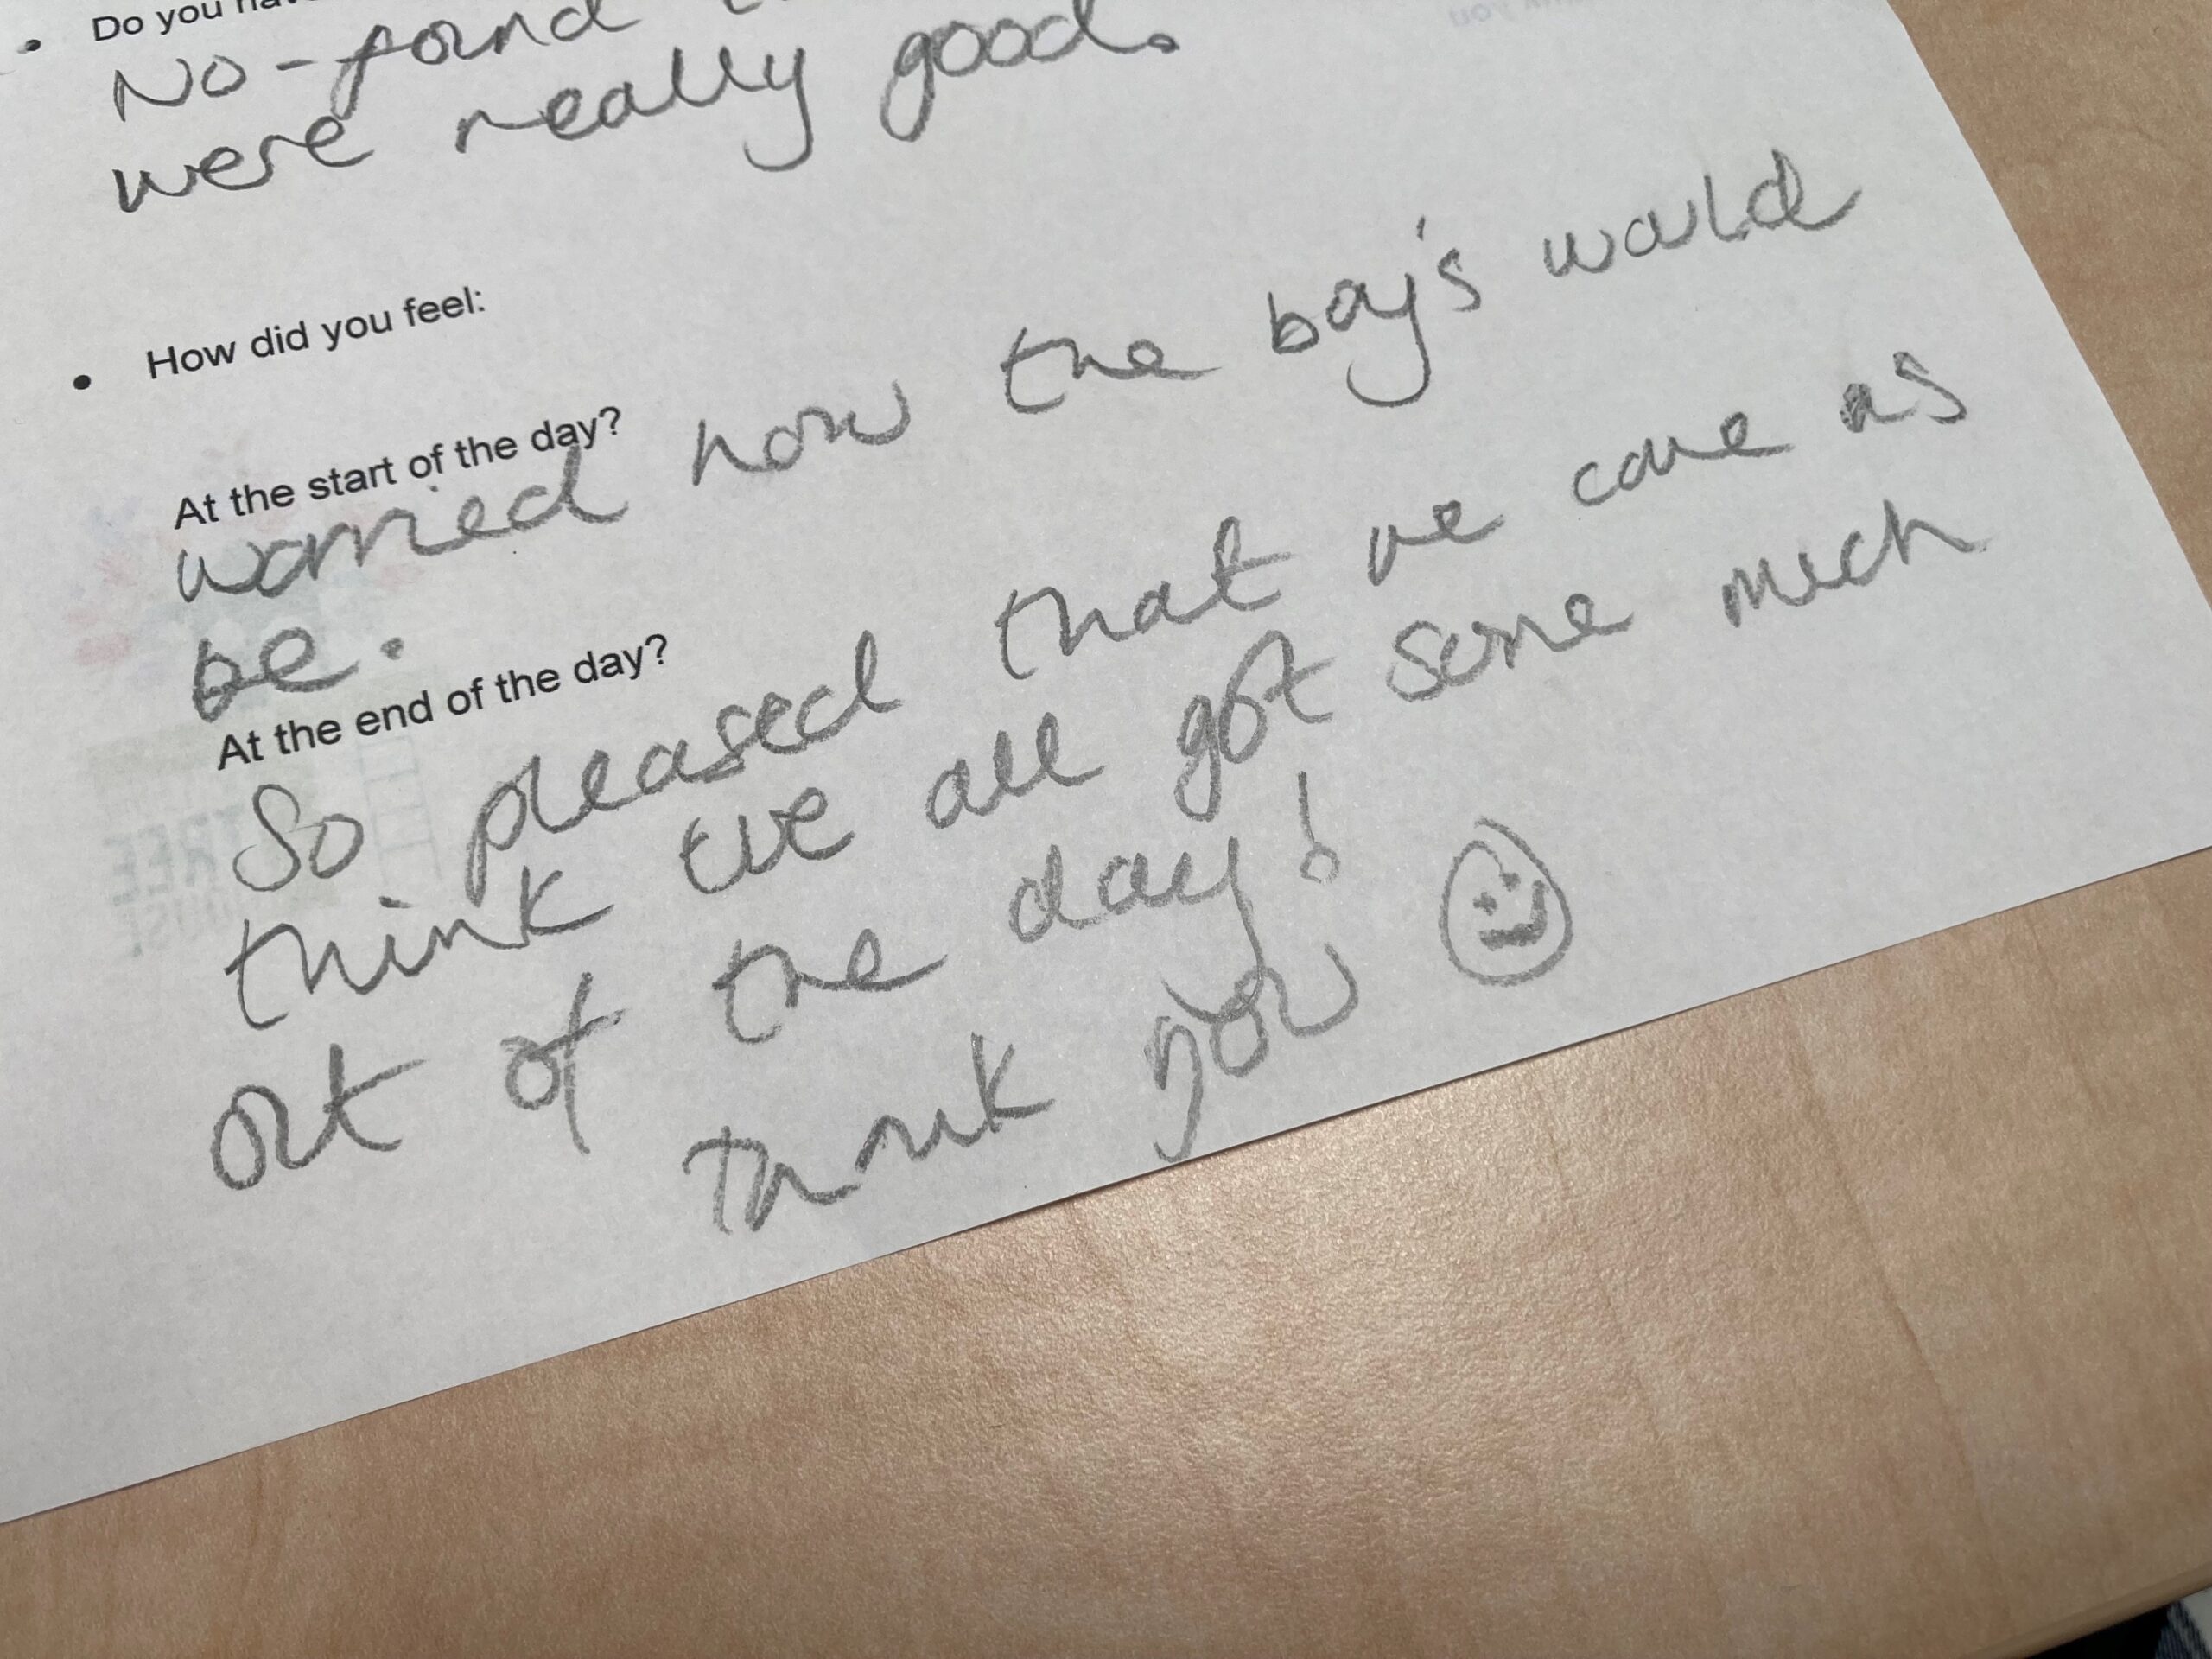 Do you
No - found
were really good.
How did you feel:
At the start of the day?
worried how the boy's would
be.
At the end of the day?
So pleased that we came as
think we all got some much
out of the day!
Thank you
TREE